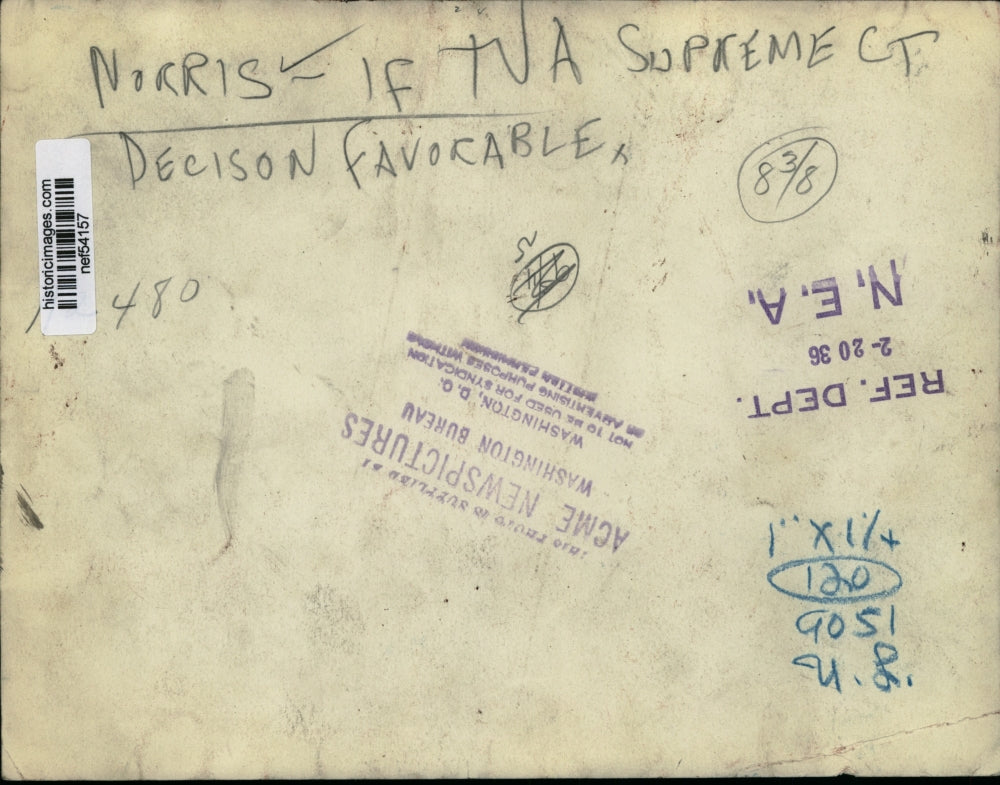 NORRIS ✓ – IF TVA SUPREME CT.
DECISON FAVORABLE
8 3/8
historicimages.com
nef54157
480
N. E. A.
2-20 36
REF. DEPT.
THIS PHOTO IS SUPPLIED BY
ACME NEWSPICTURES
WASHINGTON BUREAU
WASHINGTON, D. C.
NOT TO BE USED FOR SYNDICATION
OR ADVERTISING PURPOSES WITHOUT
WRITTEN PERMISSION
120
9051